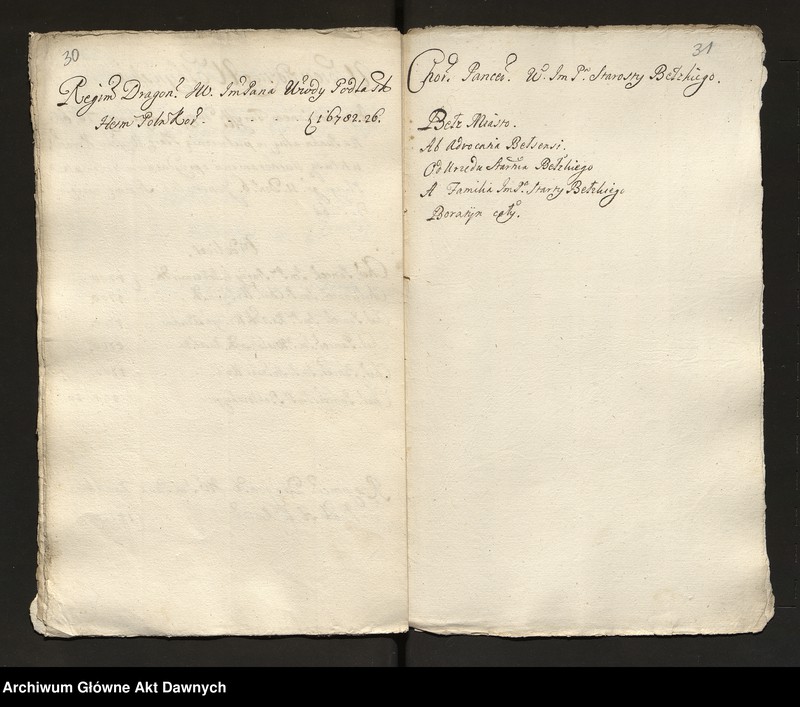 30
Regim. Dragon. JW. Jm Pana Wdy Podla Sk
Hetm Poln Kor. . [16782.26.
31
Chor. Pancer. W. Jm Pn Starosty Bełzkiego.
Bełz Miasto.
Ab Advocatia Belsensi.
Od Urzędu Starstwa Bełzkiego
A Familia Jm Pn Starty Bełzkiego
Boratyn cały.
Archiwum Główne Akt Dawnych